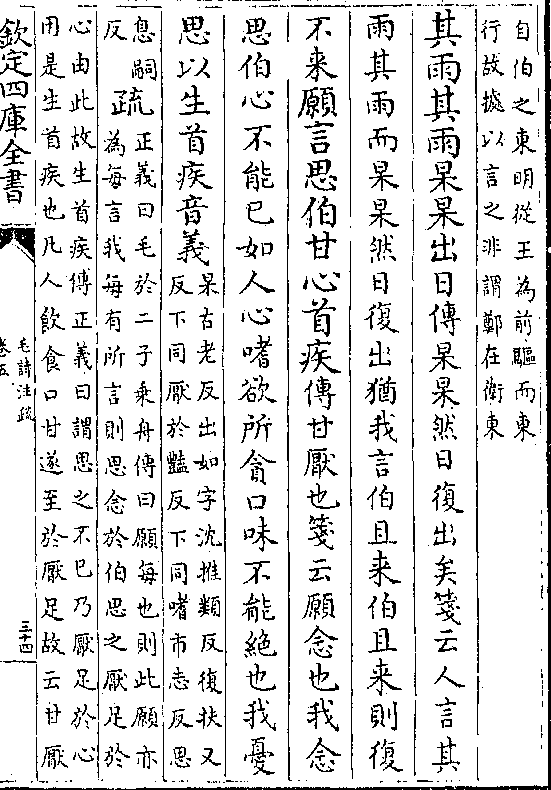 自伯之東明從王為前驅而東
行故據以言之非謂鄭在衛東
其雨其雨杲杲出日傳杲杲然日復出矣箋云人言其
雨其雨而杲杲然日復出猶我言伯且来伯且来則復
不来願言思伯甘心首疾傳甘厭也箋云願念也我念
思伯心不能已如人心嗜欲所貪口味不能絶也我憂
思以生首疾音義
杲古老反出如字沈推類反復扶又
反下同厭於豔反下同嗜市志反思
息嗣
反
疏
正義曰毛於二子乗舟傳曰願每也則此願亦
為每言我每有所言則思念於伯思之厭足於
心由此故生首疾傳正義曰謂思之不已乃厭足於心
用是生首疾也凡人飲食口甘遂至於厭足故云甘厭
欽定四庫全書
毛詩注疏
卷五
三十四